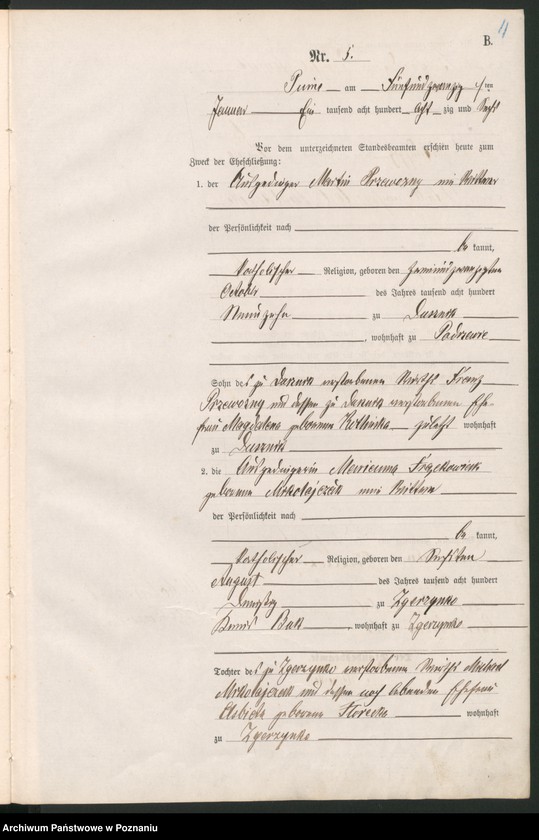 4
B.
Nr. 5.
Pinne am Fünfundzwanzig sten
Januar Ein tausend acht hundert acht zig und Sechs
Vor dem unterzeichneten Standesbeamten erschien heute zum
Zweck der Eheschließung:
1. der Ausgedinger Martin Przewozny ein Wittwer
der Persönlichkeit nach
be kannt,
katholischer Religion, geboren den
October des Jahres tausend acht hundert
Neunzehn zu Dusznik
, wohnhaft zu Podrzewie
Sohn des zu Dusznik verstorbenen Wirths Franz
Przewozny und dessen zu Dusznik verstorbenen Ehe-
frau Magdalena geborenen zuletzt wohnhaft
zu Dusznik
2. die Ausgedingerin Marianna
geborene Mikolajczak eine Wittwe
der Persönlichkeit nach
be kannt,
katholischer Religion, geboren den Sechsten
August des Jahres tausend acht hundert
zu Zgierzynko
Kreis Buk , wohnhaft zu Zgierzynko
Tochter des zu Zgierzynko verstorbenen Wirths Michael
Mikolajczak und dessen noch lebenden Ehefrau
geborene wohnhaft
zu Zgierzynko
Archiwum Państwowe w Poznaniu